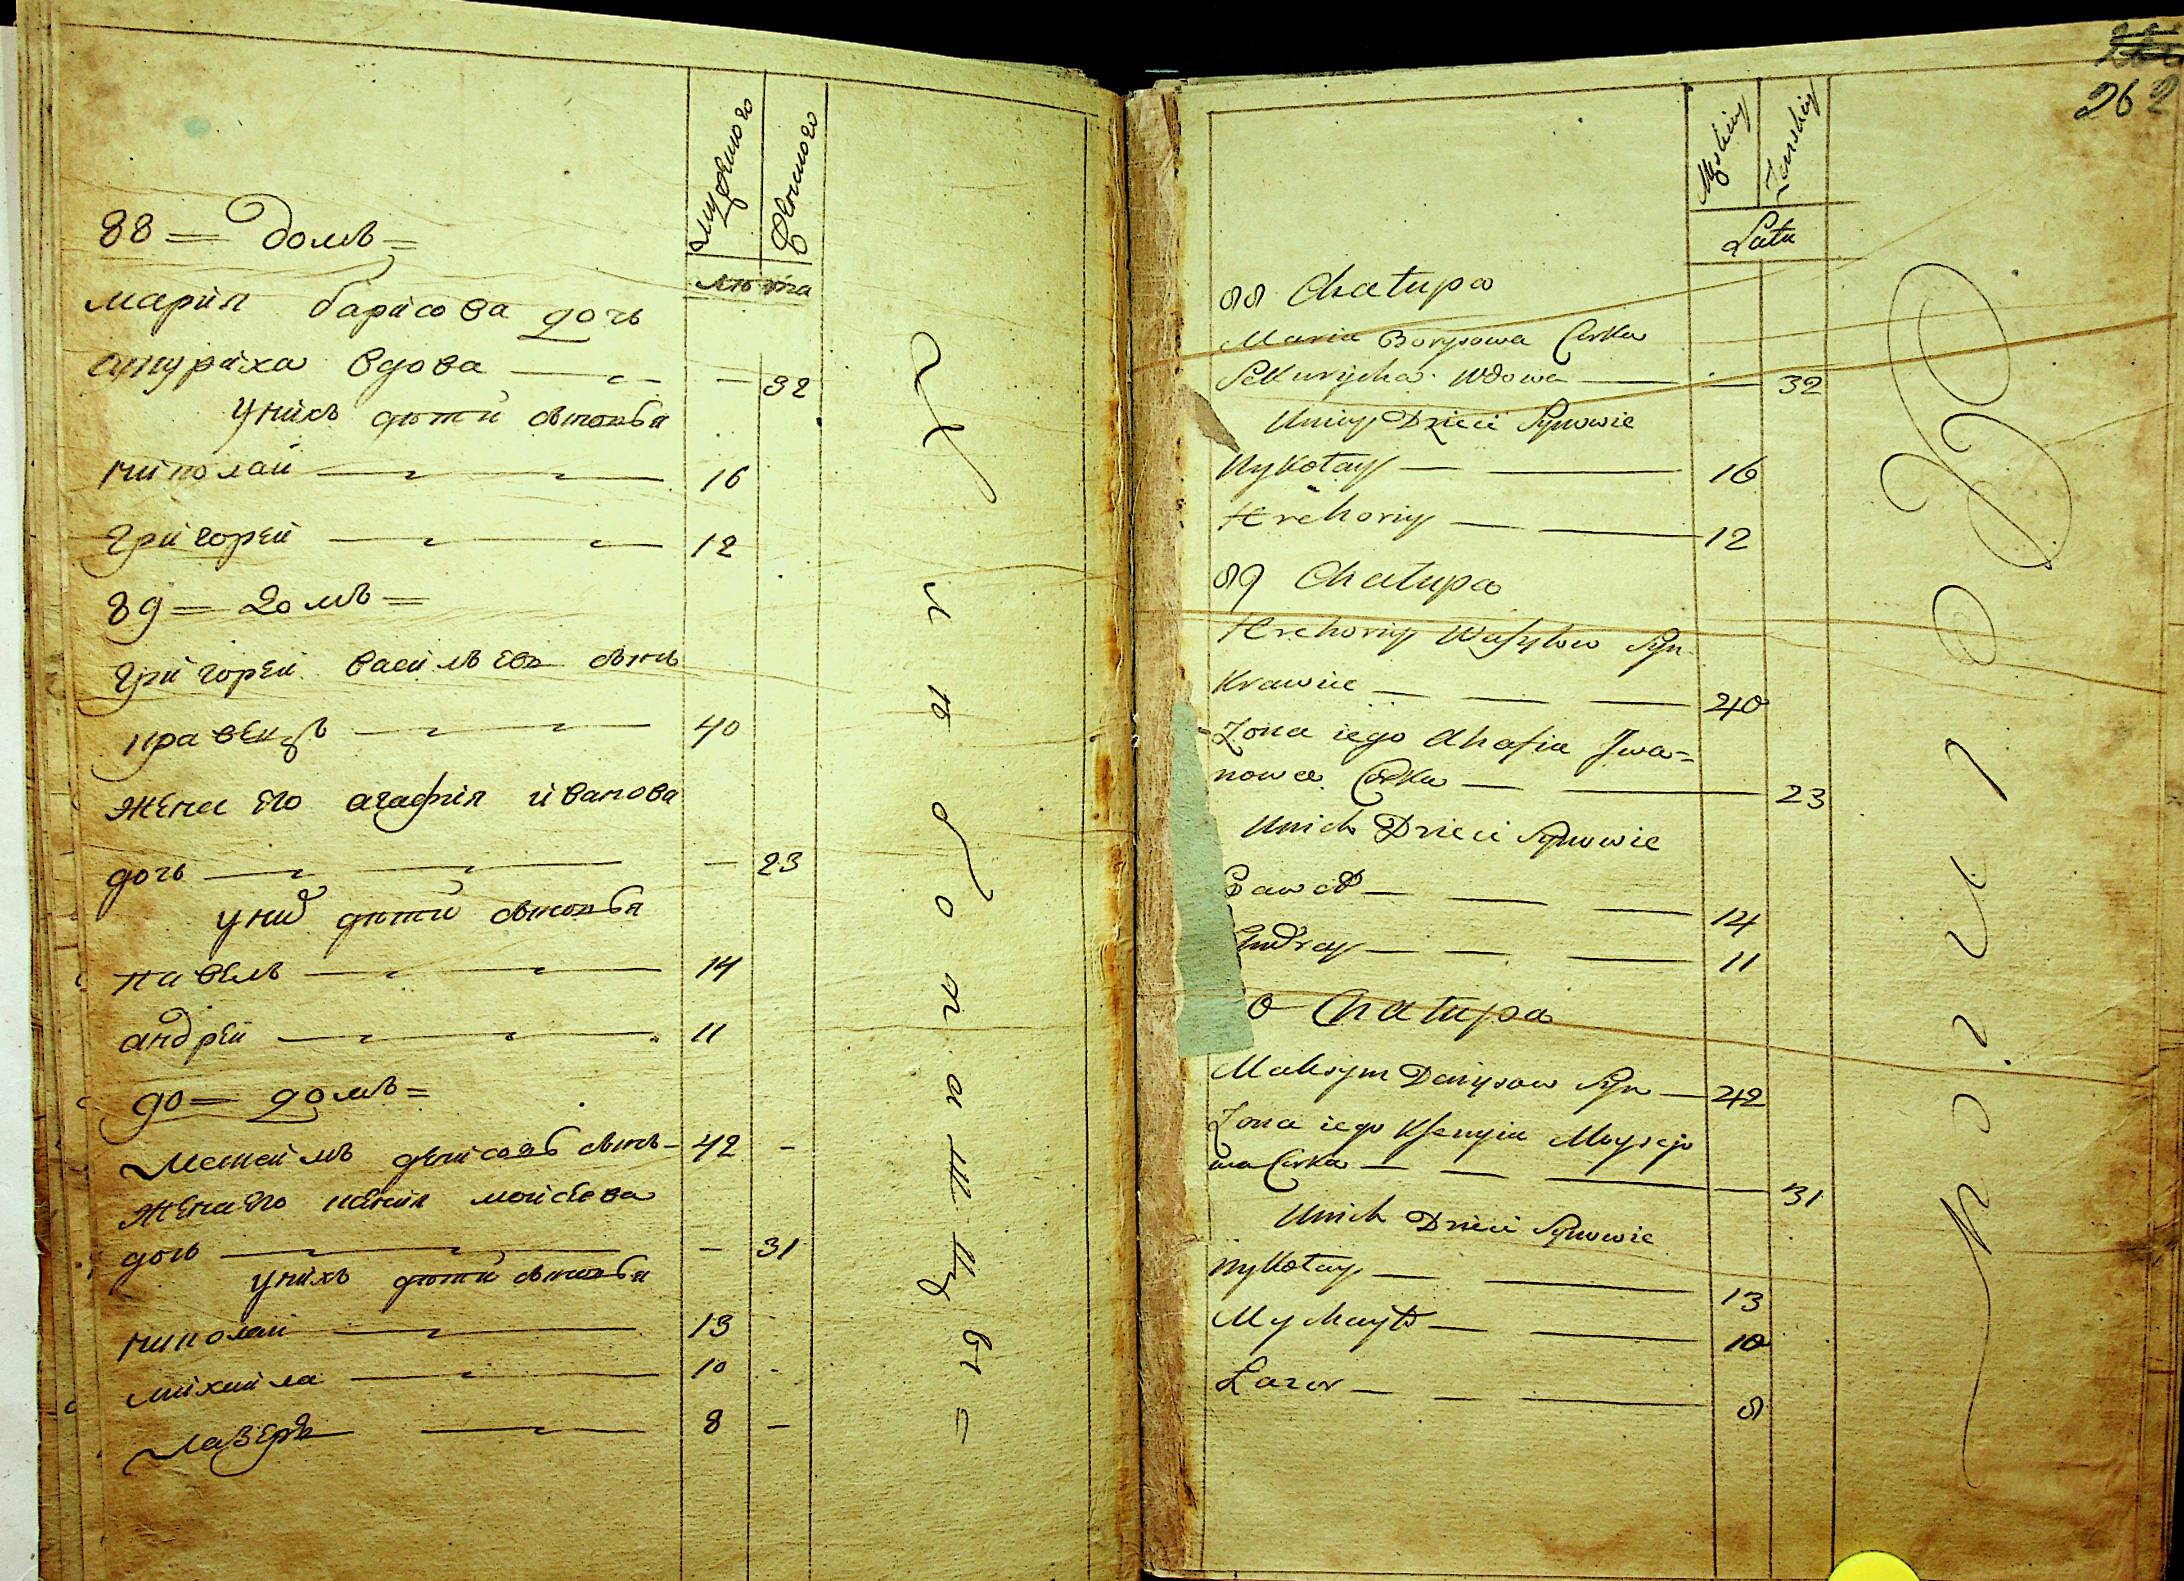 мужеского
женского
лѣта
88 = домъ =
мария барисова дочь
вдова — 32
унихъ дѣти сыновья
николай 16
григорей 12
89 = домъ =
григорей васильевъ сынъ
кравецъ 40
жена его агафия иванова
дочь — 23
уних дѣти сыновья
павелъ 14
андрей 11
90 = домъ =
максимъ денисовъ сынъ — 42 -
жена его ксения мойсеева
дочь — 31
унихъ дѣти сыновья
николай 13
михайла 10 -
лазеръ 8 -
262
Męskiey
Zenskiey
Lata
88 Chałupa
Maria Borysowa Corka
Wdowa — 32
Unich Dzieci Synowie
Nykołay 16
Hrehoriy 12
89 Chałupa
Hrehoriy Wasylow Syn
Krawiec 40
Zona iego Ahafia Jwa=
nowa Corka 23
Unich Dzieci Synowie
Paweł 14
Andrey 11
0 Chałupa
Maksym Denysow Syn — 42
Zona iego Ksenyia Moysejo
wa Corka 31
Unich Dzieci Synowie
Nykołay 13
Myhayło 10
Łazor 8